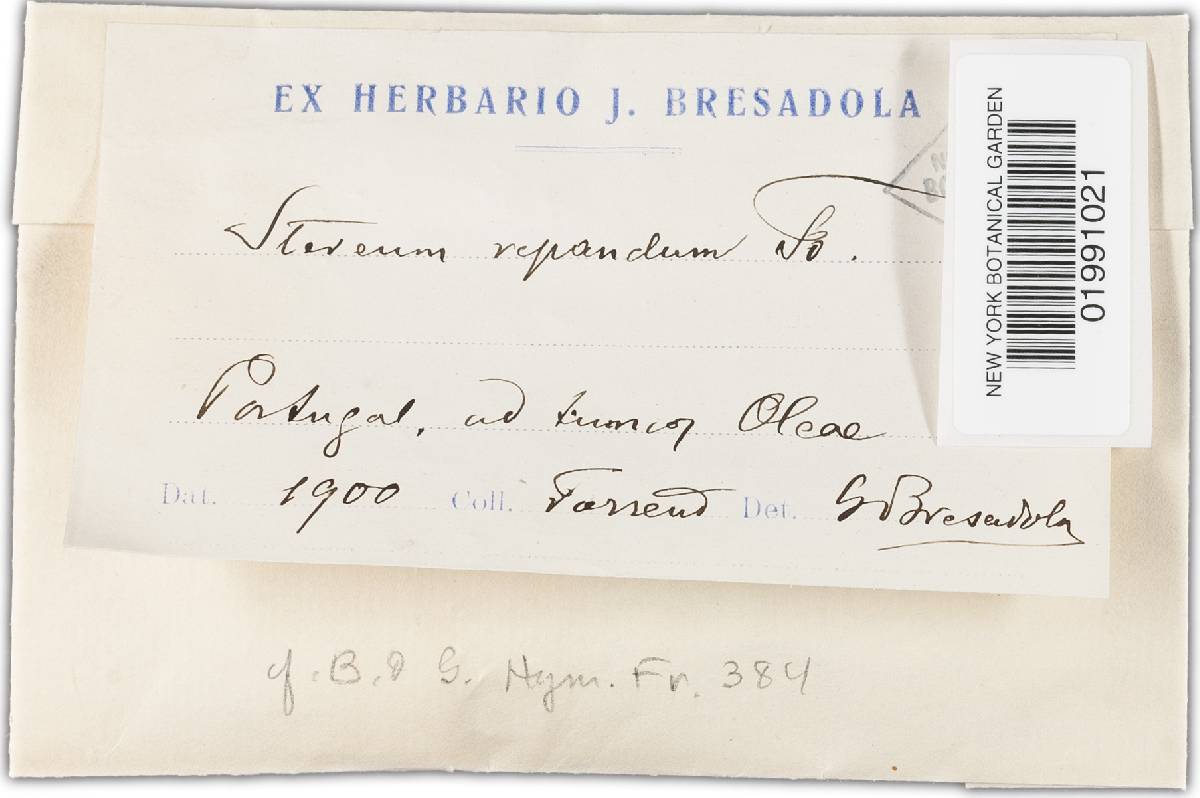 EX HERBARIO J. BRESADOLA
Stereum repandum Fr.
Portugal, ad truncos Oleae
Dat. 1900 Coll. Torrend Det. G Bresadola
cf. B. & G. Hym. Fr. 384
NEW YORK BOTANICAL GARDEN
01991021